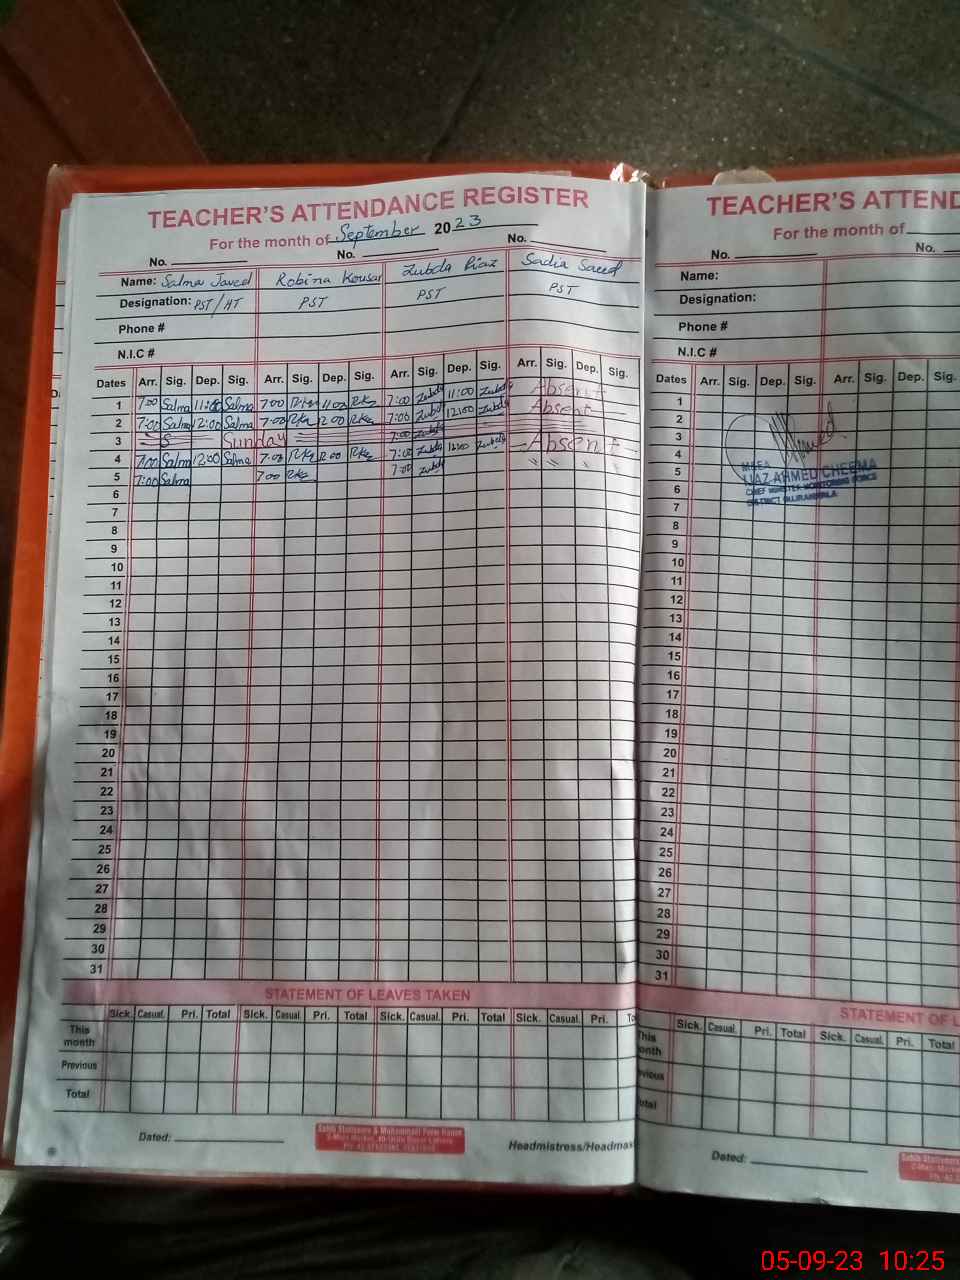 TEACHER'S ATTENDANCE REGISTER
For the month of September 2023
No. No. No.
Name: Salma Javed Robina Kousar Zubda Riaz Sadia Saeed
Designation: PST/HT PST PST PST
Phone #
N.I.C #
Dates Arr. Sig. Dep. Sig. Arr. Sig. Dep. Sig. Arr. Sig. Dep. Sig. Arr. Sig. Dep. Sig.
1 7:00 Salma 11:00 Salma 7:00 RKs 11:00 RKs 7:00 Zubda 11:00 Zubda Absent
2 7:00 Salma 12:00 Salma 7:00 RKs 12:00 RKs 7:00 Zubda 12:00 Zubda Absent
3 S Sunday 7:00 Zubda
4 7:00 Salma 12:00 Salma 7:00 RKs 12:00 RKs 7:00 Zubda 12:00 Zubda Absent
5 7:00 Salma 7:00 RKs 7:00 Zubda " " " "
6
7
8
9
10
11
12
13
14
15
16
17
18
19
20
21
22
23
24
25
26
27
28
29
30
31
STATEMENT OF LEAVES TAKEN
Sick. Casual. Pri. Total Sick. Casual. Pri. Total Sick. Casual. Pri. Total Sick. Casual. Pri. To
This month
Previous
Total
Dated:
Headmistress/Headmas
TEACHER'S ATTEND
For the month of
No. No.
Name:
Designation:
Phone #
N.I.C #
Dates Arr. Sig. Dep. Sig. Arr. Sig. Dep. Sig.
1
2
3
4
5
6
7
8
9
10
11
12
13
14
15
16
17
18
19
20
21
22
23
24
25
26
27
28
29
30
31
MEA
IJAZ AHMED CHEEMA
CHIEF MINISTER MONITORING FORCE
DISTRICT GUJRANWALA
STATEMENT OF L
Sick. Casual. Pri. Total Sick. Casual. Pri. Total
This
onth
evious
otal
Dated:
05-09-23 10:25